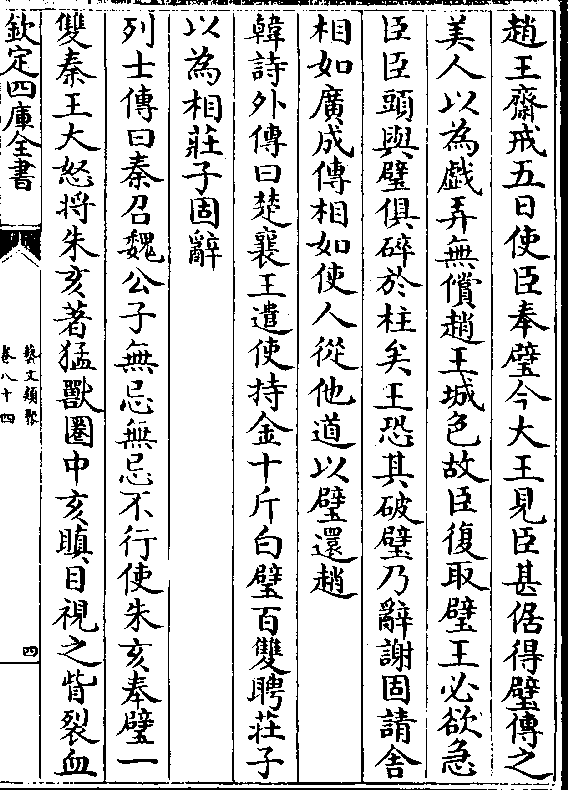 趙王齋戒五日使臣奉璧今大王見臣甚倨得璧傳之
美人以為戯弄無償趙王城色故臣復取璧王必欲急
臣臣頭與璧俱碎於柱矣王恐其破璧乃辭謝固請舎
相如廣成傳相如使人從他道以璧還趙
韓詩外傳曰楚襄王遣使持金十斤白璧百雙聘莊子
以為相莊子固辭
列士傳曰秦召魏公子無忌無忌不行使朱亥奉璧一
雙秦王大怒将朱亥著猛獸圏中亥瞋目視之眥裂血
欽定四庫全書
藝文類聚
卷八十四
四